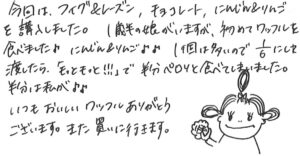 今回は、フィグ&レーズン, チョコレート, にんじん&りんご
を購入しました。 1歳半の娘がいますが、初めてワッフルを
食べました♪ にんじん&りんご♪♪ 1個は多いので 1/6にして
渡したら、「もっともっと!!!」で 半分ペロリと食べてしまいました。
半分は私が♪♪
いつもおいしいワッフルありがとう
ございます。また買いに行きます。